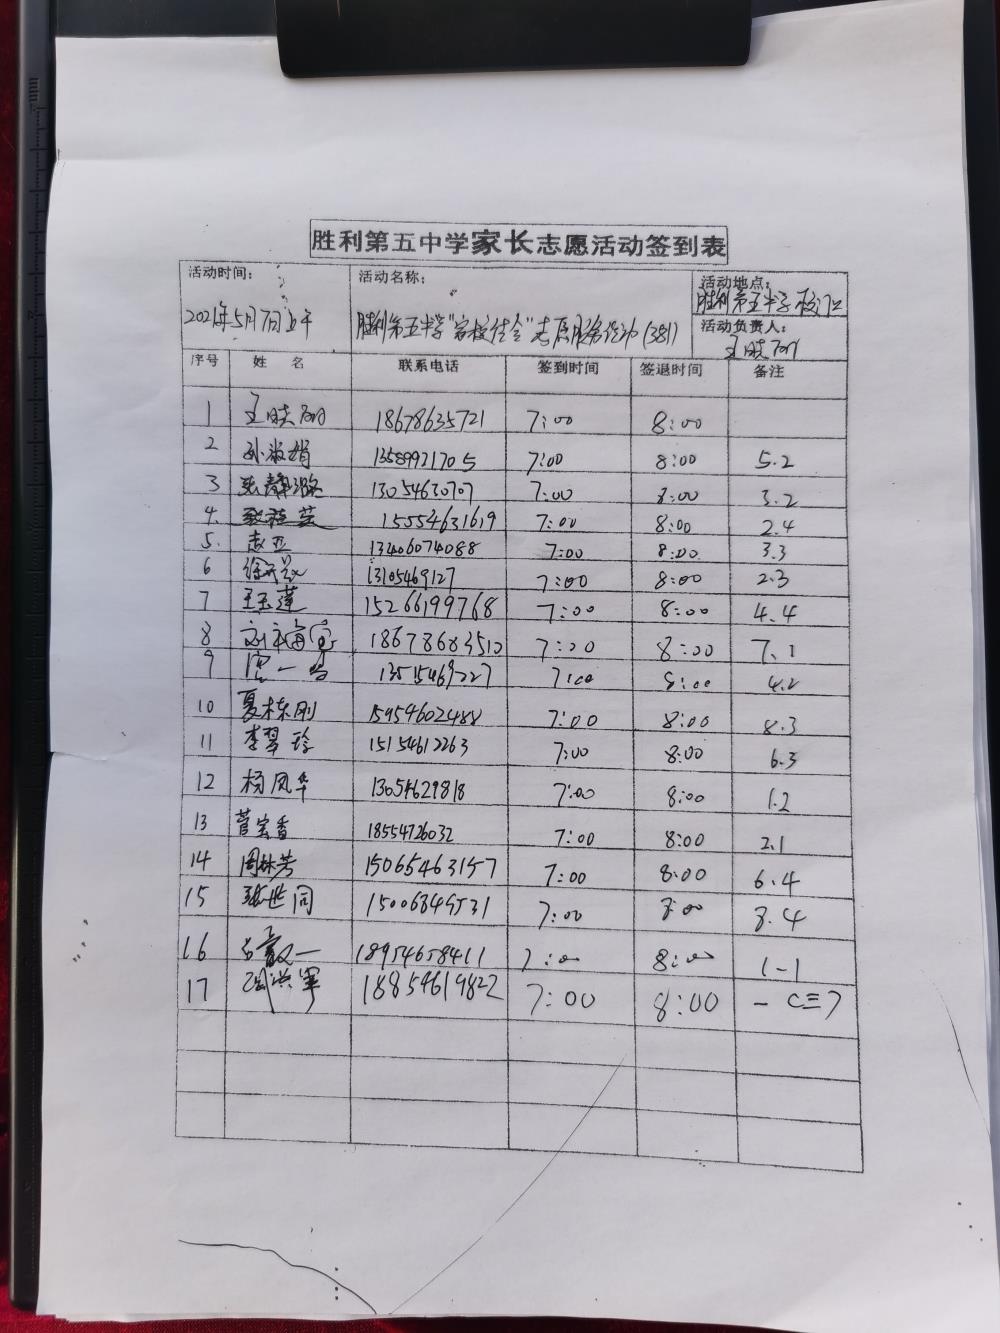 胜利第五中学家长志愿活动签到表
活动时间： 活动名称： 活动地点：
2021年5月7日上午 胜利第五中学"家校结合"志愿服务活动(381) 胜利第五中学校门口
活动负责人：
王晓丽
序号 姓 名 联系电话 签到时间 签退时间 备注
1 王晓丽 18678635721 7:00 8:00
2 孙淑娟 13589921705 7:00 8:00 5.2
3 张静璐 13054630707 7:00 8:00 3.2
4. 15554631619 7:00 8:00 2.4
5. 赵亚 13406074088 7:00 8:00 3.3
6 13105469127 7:00 8:00 2.3
7 王玉莲 15266199768 7:00 8:00 4.4
8 18678683510 7:00 8:00 7.1
9 13515469227 7:00 8:00 4.2
10 夏栋刚 15954602488 7:00 8:00 8.3
11 李翠玲 15154612263 7:00 8:00 6.3
12 杨凤华 13054629818 7:00 8:00 1.2
13 菅宝香 18554726032 7:00 8:00 2.1
14 周林芳 15065463157 7:00 8:00 6.4
15 张世同 15006849531 7:00 8:00 8.4
16 18954658411 7:00 8:00 1-1
17 18854619822 7:00 8:00